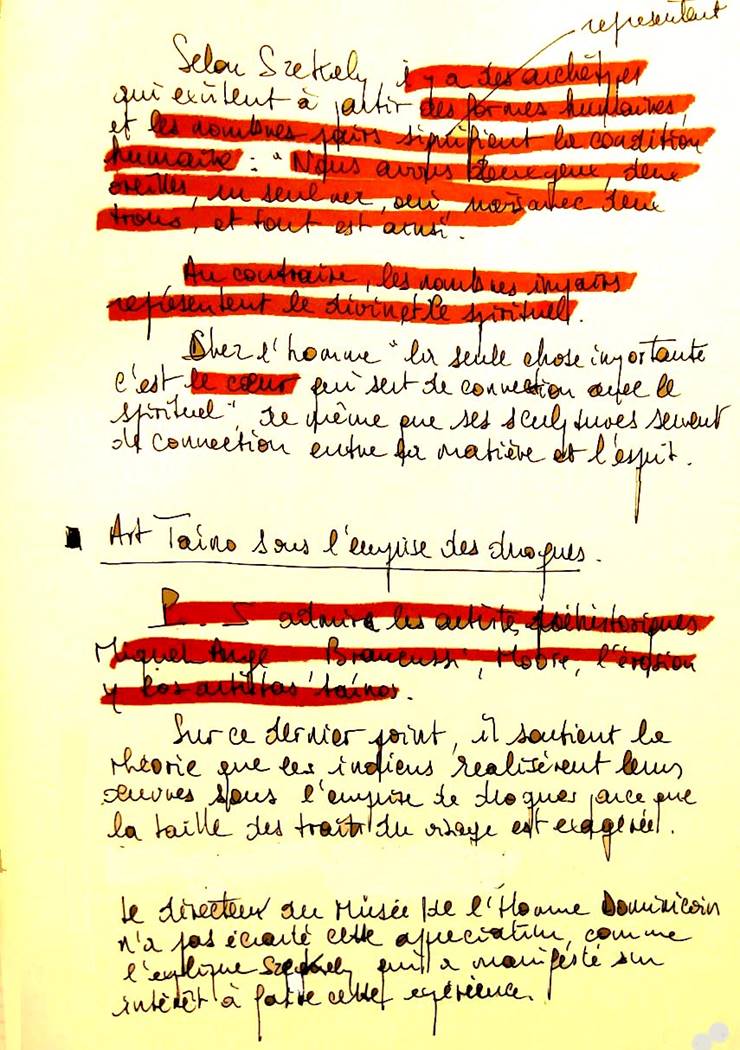 representent
Selon Szekely, il y a des archétypes
qui existent à partir des formes humaines,
et les nombres pairs signifient la condition
humaine : "Nous avons deux yeux, deux
oreilles, un seul nez, oui mais avec deux
trous, et tout est ainsi".
Au contraire, les nombres impairs
représentent le divin et le spirituel.
Chez l'homme "la seule chose importante
c'est le cœur qui sert de connection avec le
spirituel", de même que ses sculptures servent
de connection entre la matière et l'esprit.
Art Taïno sous l'emprise des drogues.
P. S admire les artistes préhistoriques
Miguel Ange Brancussi, Moore, l'érosion
y los artistas taïnos.
Sur ce dernier point, il soutient la
théorie que les indiens realisèrent leurs
œuvres sous l'emprise de drogues parce que
la taille des traits du visage est exagérée.
Le directeur du Musée de l'Homme Dominicain
n'a pas écarté cette apreciation, comme
l'explique Szekely qui a manifesté son
intérêt à faire cette expérience.